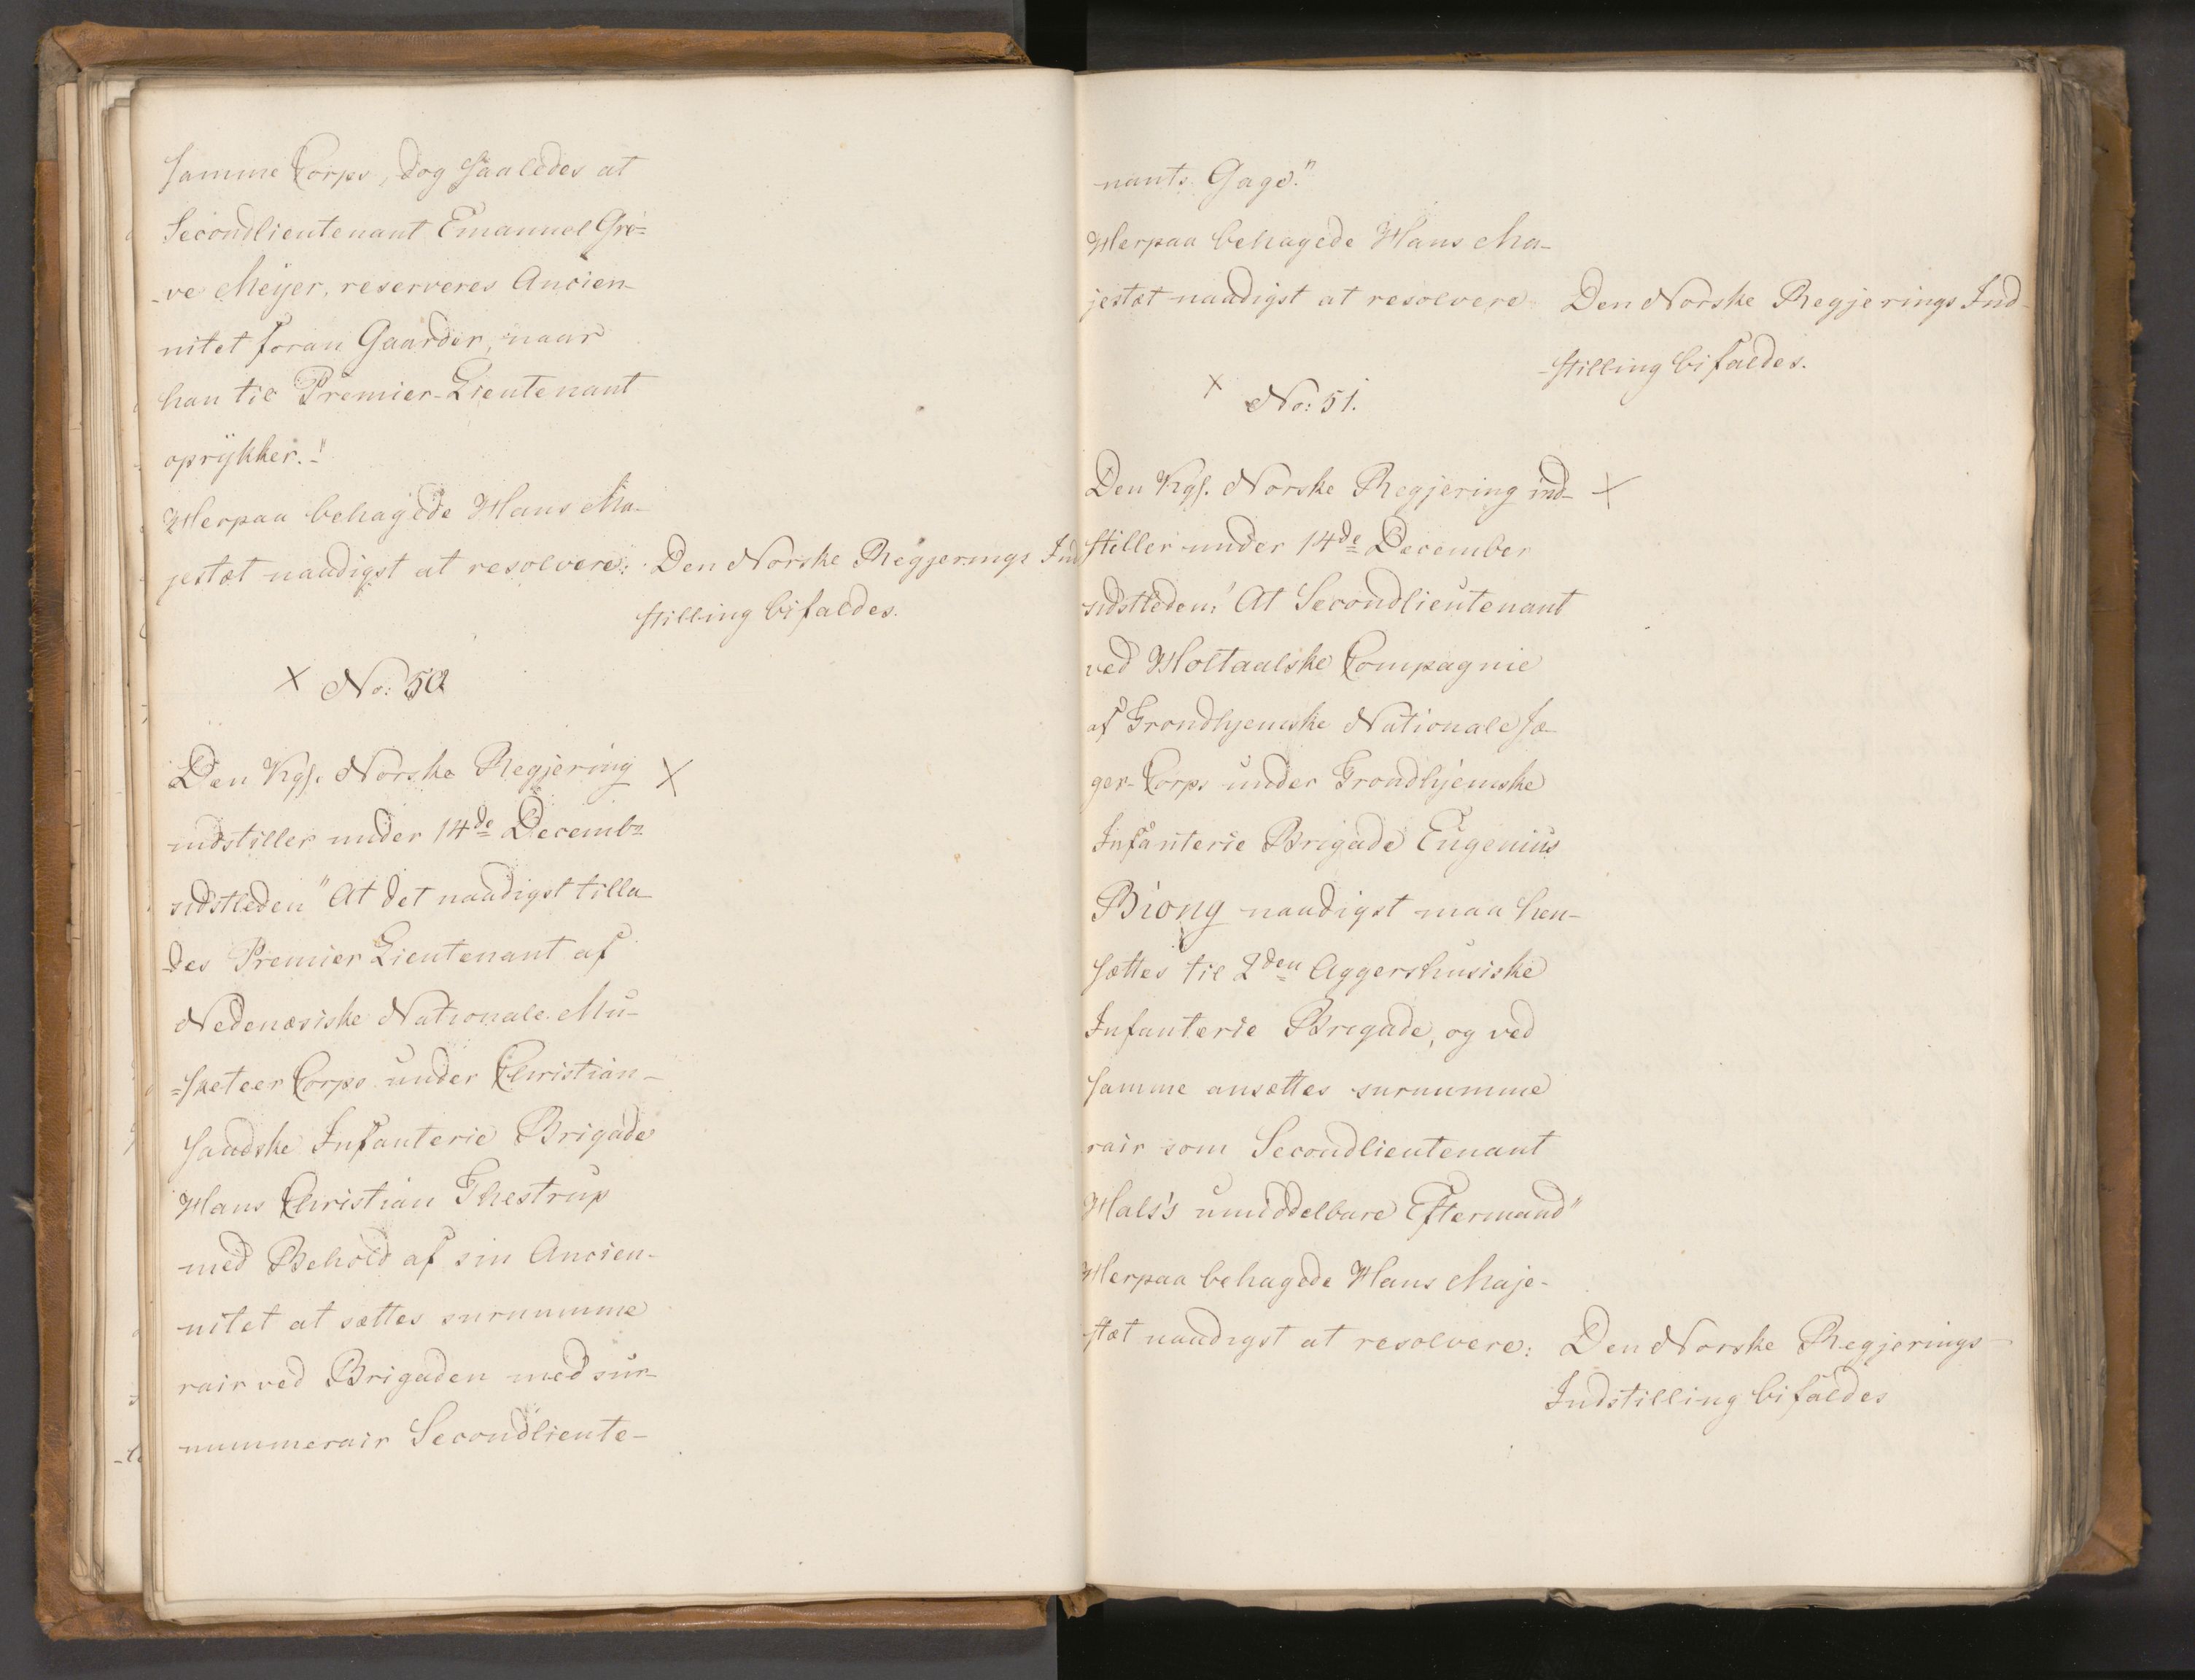 samme Corps, dog saaledes at
Secondlieutenant Emanuel Gre=
-ve Meÿer, reserveres Ancien-
nitet foran Gaarder, naar
han til Premier-Lieutenant
oprykker."
Herpaa behagede Hans Ma-
jestæt naadigst at resolvere: Den Norske Regjerings Ind
stilling bifaldes.
X No: 50
Den Kgl. Norske Regjering X
indstiller under 14de Decembr
sidstleden "At det naadigst tilla-
des Premier Lieutenant af
Nedenæsiske Nationale Mu-
=sketeer Corps under Christian-
sandske Infanterie Brigade
Hans Christian Thestrup
med Behold af sin Ancien-
nitet at sættes surnumme
rair ved Brigaden med sur-
nummerair Secondliente-
nants Gage."
Herpaa behagede Hans Ma-
jestæt naadigst at resolvere Den Norske Regjerings Ind-
-stilling bifaldes.
X No: 51.
Den Kgl. Norske Regjering ind- X
stiller under 14de December
sidstleden: "At Secondlieutenant
ved Holtaalske Compagnie
af Trondhjemske Nationale Jæ-
ger-Corps under Trondhjemske
Infanterie Brigade Eugenius
Biong naadigst maa hen-
sættes til 2den Aggershusiske
Infanterie Brigade, og ved
samme ansættes surnumme
rair som Secondlieutenant
Hals's umiddelbare Eftermand"
Herpaa behagede Hans Maje-
stæt naadigst at resolvere: Den Norske Regjerings-
Indstilling bifaldes